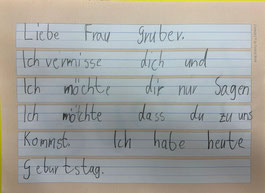 Liebe Frau gruber.
Ich vermisse dich und
Ich möchte dir nur Sagen
Ich möchte dass du zu uns
Kommst. Ich habe heute
Geburtstag.